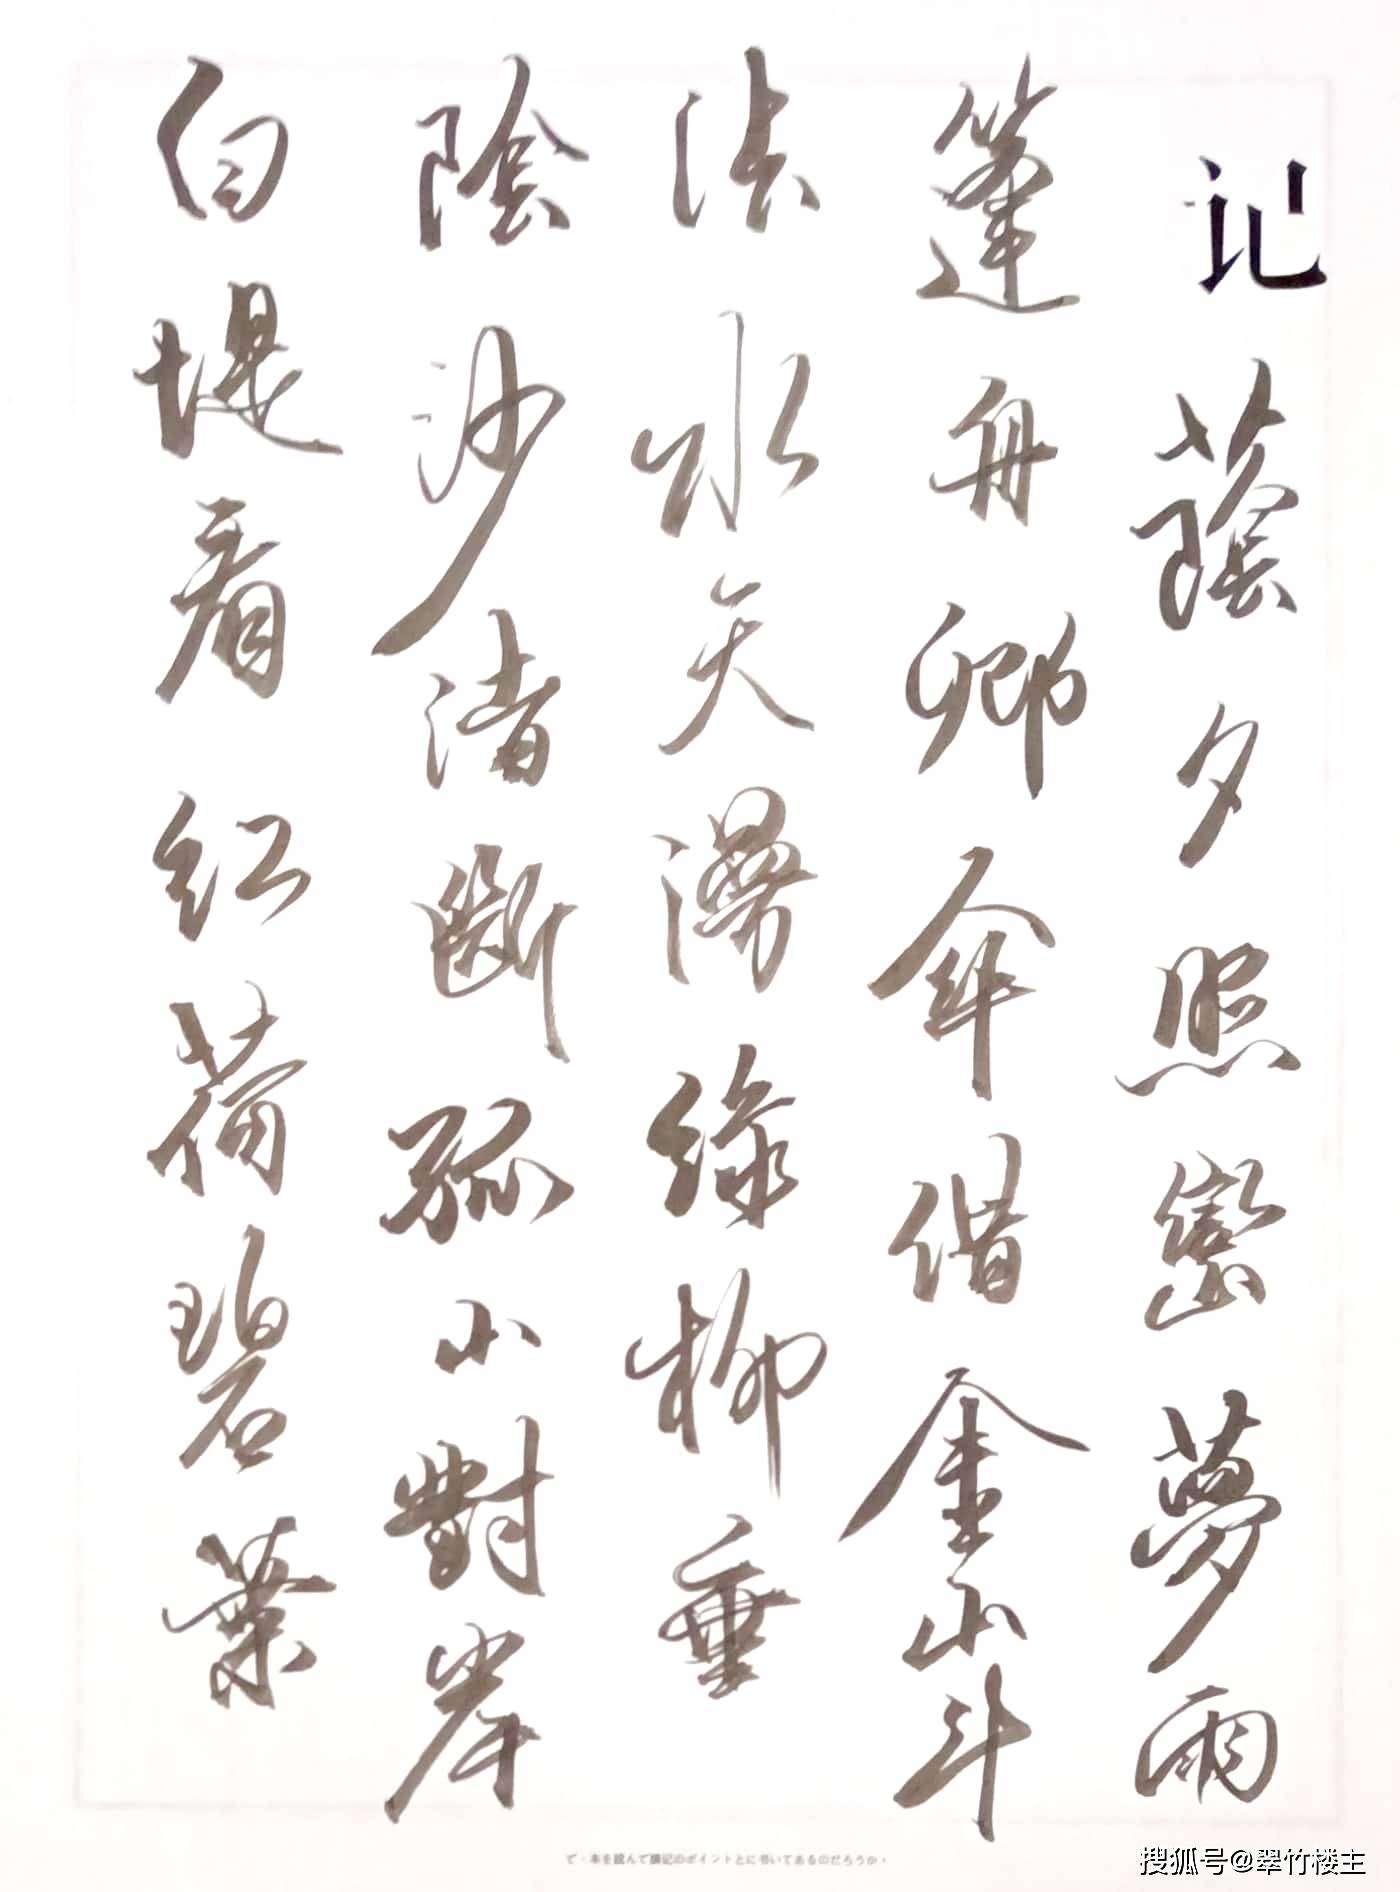 记蔭夕照巒夢雨
篷舟卿傘借金山斗
法水天漫綠柳垂
陰沙渚斷孤小對岸
白堤看紅荷碧葉
て・本を読んで讀记のポイントとに书いてあるのだろうか・
搜狐号@翠竹楼主